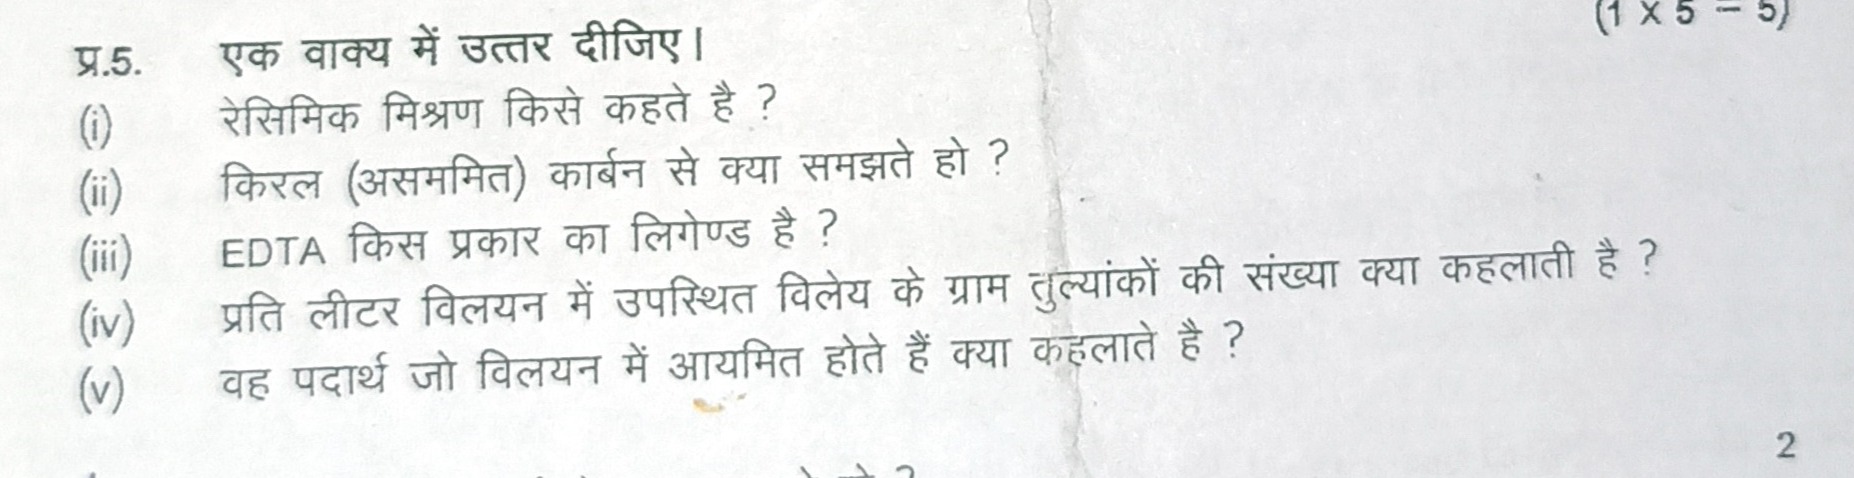 (1 × 5 = 5)
प्र.5. एक वाक्य में उत्तर दीजिए।
(i) रेसिमिक मिश्रण किसे कहते है ?
(ii) किरल (असममित) कार्बन से क्या समझते हो ?
(iii) EDTA किस प्रकार का लिगेण्ड है ?
(iv) प्रति लीटर विलयन में उपस्थित विलेय के ग्राम तुल्यांकों की संख्या क्या कहलाती है ?
(v) वह पदार्थ जो विलयन में आयमित होते हैं क्या कहलाते है ?
2